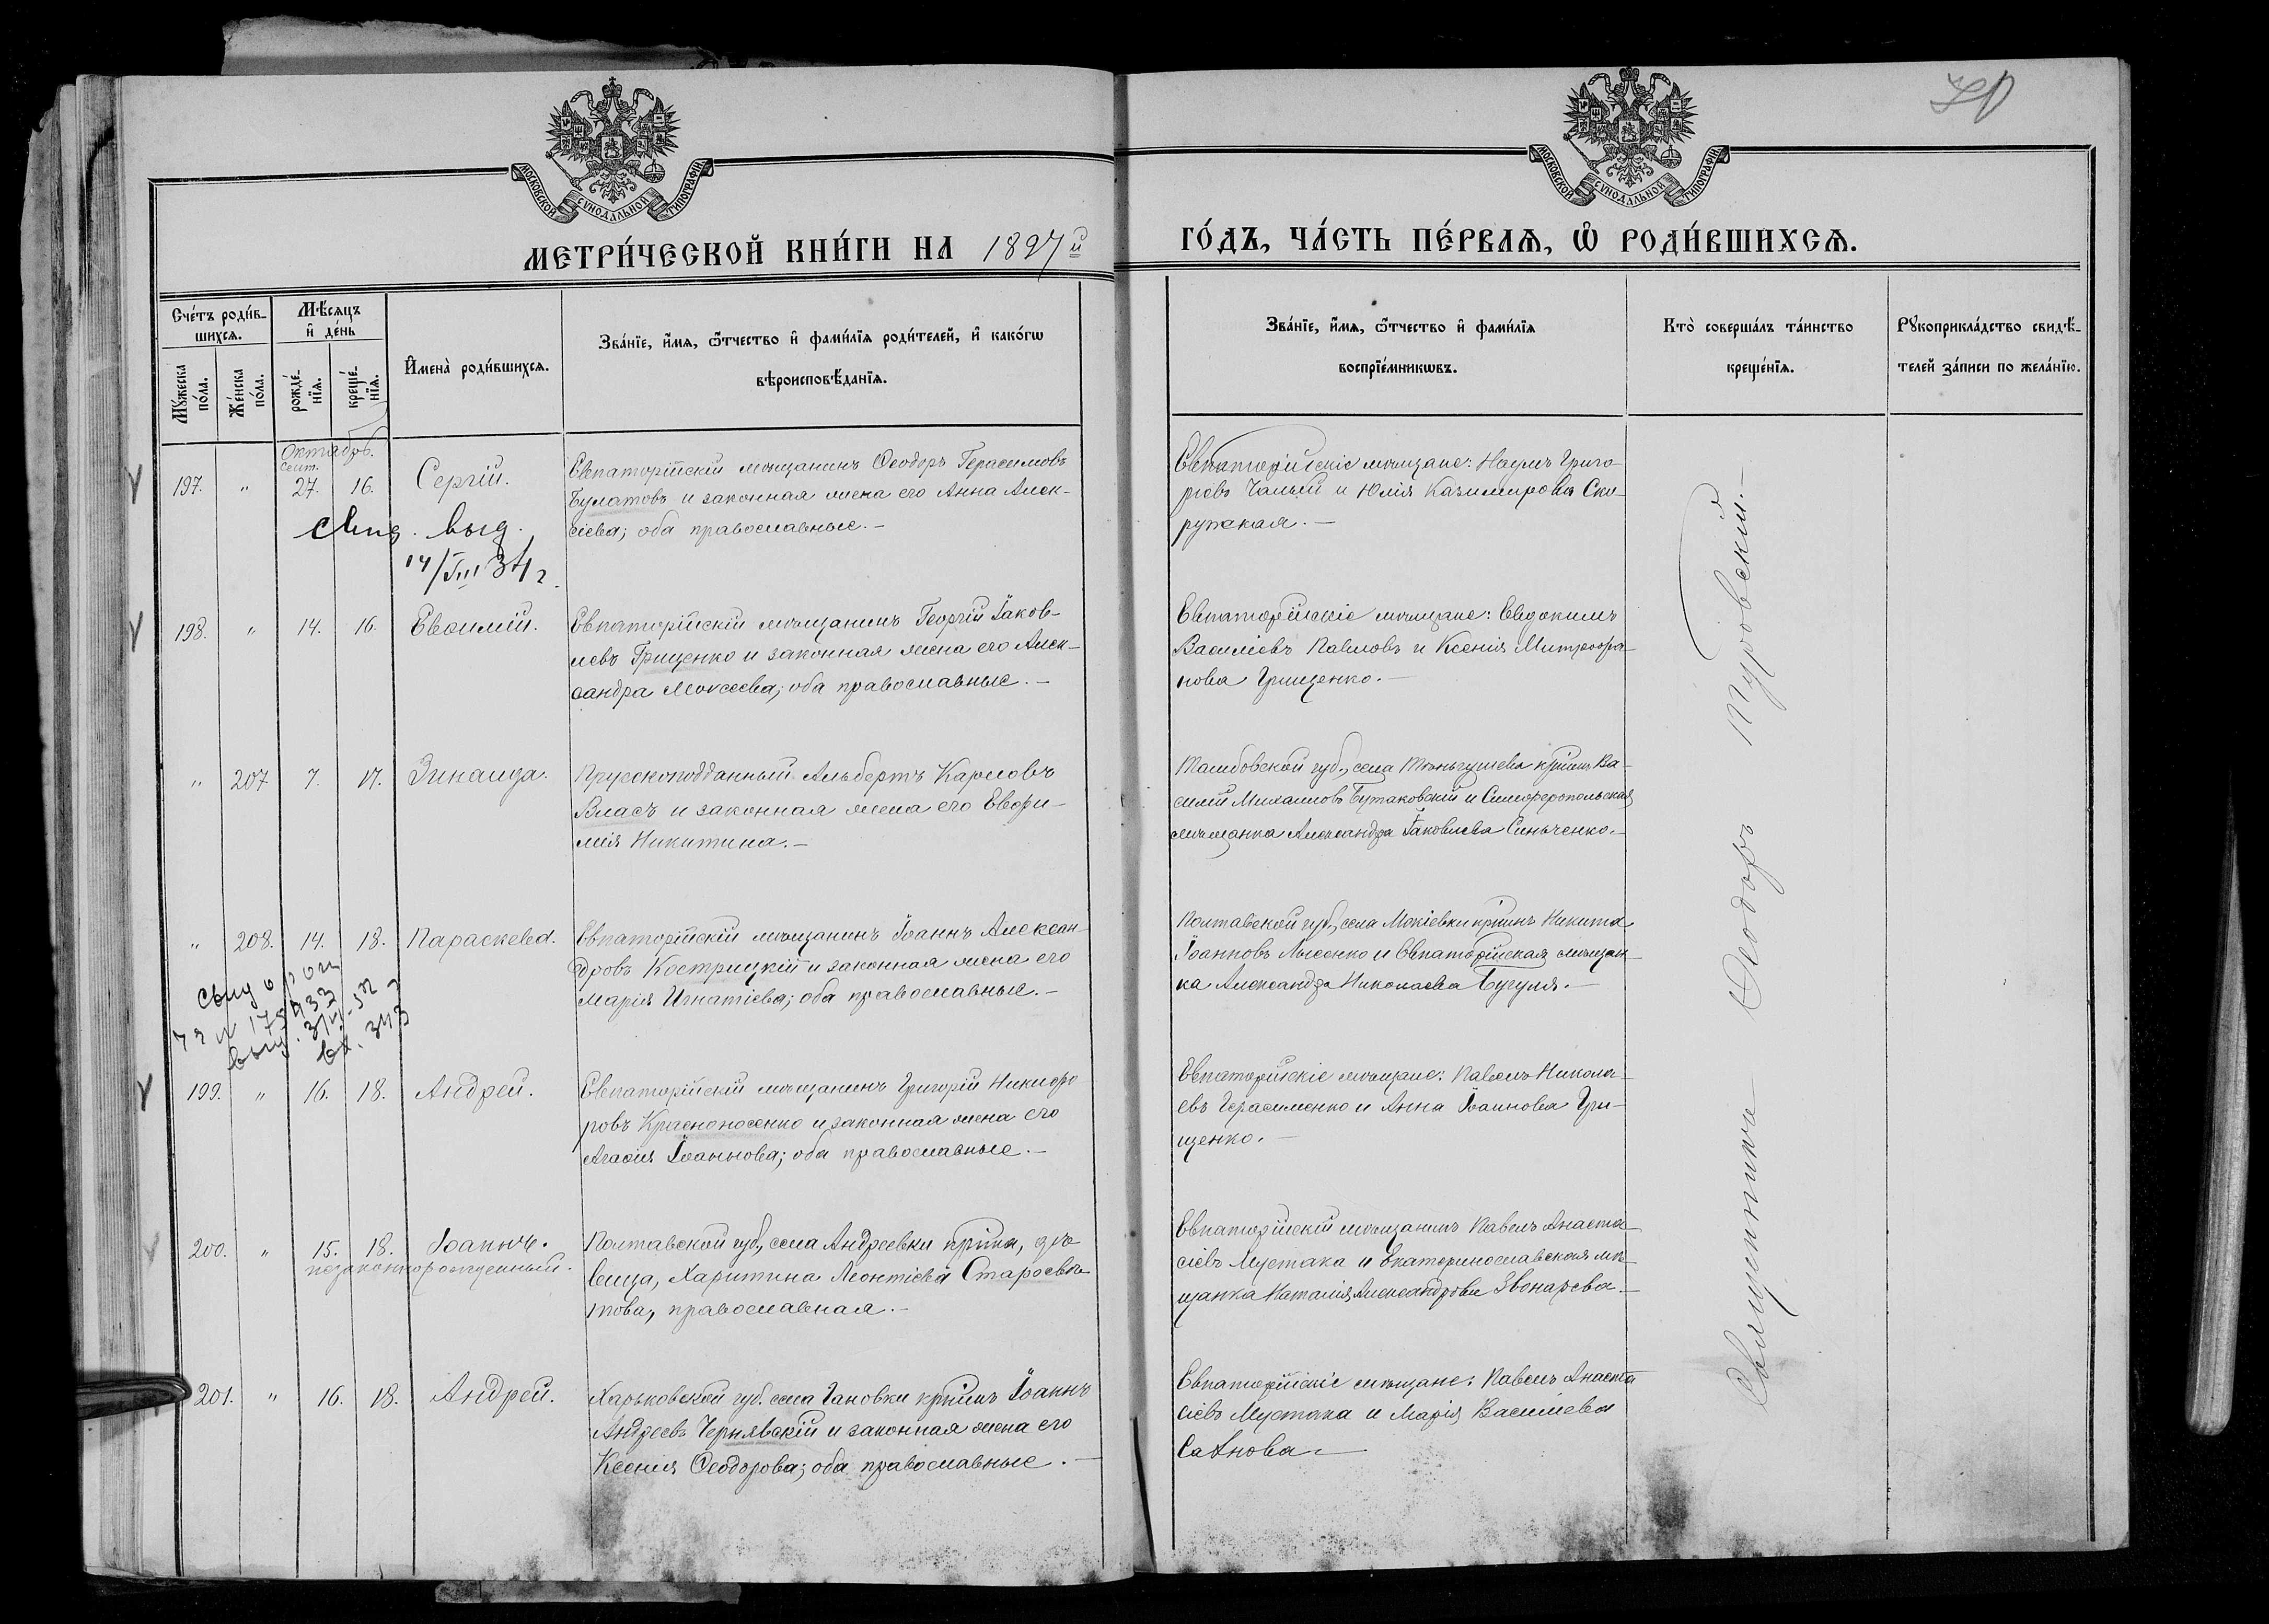 70
МОСКОВСКОЙ СѴНОДАЛЬНОЙ ТИПОГРАФІИ.
МОСКОВСКОЙ СѴНОДАЛЬНОЙ ТИПОГРАФІИ.
МЕТРИ́ЧЕСКОЙ КНИ́ГИ НА 1897 й
ГО́ДЪ, ЧА́СТЬ ПЕ́РВАѦ, Ѽ РОДИ́ВШИХСѦ.
Сче́тъ роди́в-
шихсѧ.
Мѣ́сѧцъ
и҆ де́нь
Мꙋ́жеска
по́ла.
Же́нска
по́ла.
рожде́-
нїѧ.
креще́-
нїѧ.
И҆мена̀ роди́вшихсѧ.
Зва́нїе, и҆́мѧ, ѻ҆́тчество и҆ фами́лїѧ роди́телей, и҆ како́гѡ
вѣроисповѣ́данїѧ.
Зва́нїе, и҆́мѧ, ѻ҆́тчество и҆ фами́лїѧ
воспрїе́мникѡвъ.
Кто̀ соверша́лъ та́инство
креще́нїѧ.
Рꙋкоприкла́дство свидѣ́-
телей за́писи по жела́нїю.
Октябрь.
Сент.
197. " 27. 16. Сергій.
Евпаторійскій мѣщанинъ Ѳеодоръ Герасимовъ
Булатовъ и законная жена его Анна Алек-
сіева; оба православные.-
Евпаторійскіе мѣщане: Наумъ Григо-
ріевъ Чалый и Юлія Казимирова Ску-
рупская.-
Свид. выд.
14/VIII 34 г.
198. " 14. 16. Евѳимій.
Евпаторійскій мѣщанинъ Георгій Іаков-
левъ Грищенко и законная жена его Алек-
сандра Моисеева; оба православные.-
Евпаторійскіе мѣщане: Евдокимъ
Василіевъ Павловъ и Ксенія Митрофа-
нова Грищенко.-
" 207 7. 17. Зинаида.
Прусскоподданный Альбертъ Карловъ
Власъ и законная жена его Евфи-
мія Никитина.-
Тамбовской губ., села Теньгушева кр-инъ Ва-
силій Михаиловъ Бутаковскій и Симферопольская
мѣщанка Александра Іаковлева Синьченко.-
" 208. 14. 18. Параскева.
Евпаторійскій мѣщанинъ Іоаннъ Алексан-
дровъ Кострицкій и законная жена его
Марія Игнатіева; оба православные.-
Полтавской губ., села Мокіевки кр-инъ Никита
Іоанновъ Лысенко и Евпаторійская мѣщан-
ка Александра Николаева Бугуля.-
свид о рож
199. " 16. 18. Андрей.
Евпаторійскій мѣщанинъ Григорій Никифо
ровъ Красноносенко и законная жена его
Агаѳія Іоаннова; оба православные.-
Евпаторійскіе мѣщане: Павелъ Никола-
евъ Герасименко и Анна Іоаннова Гри-
щенко.-
200. " 15. 18. Іоаннъ.
незаконнорожденный.
Полтавской губ., села Андреевки кр-нка, дѣ-
вица, Харитина Леонтіева Старосвѣ-
това, православная.-
Евпаторійскій мѣщанинъ Павелъ Анаста-
сіевъ Мустака и Екатеринославская мѣ-
щанка Наталія Александрова Звонарева.-
201. " 16. 18. Андрей.
Харьковской губ. села Гановки кр-инъ Іоаннъ
Андреевъ Чернявскій и законная жена его
Ксенія Ѳеодорова; оба православные.-
Евпаторійскіе мѣщане: Павелъ Анаста
сіевъ Мустака и Марія Василіева
Священникъ Ѳеодоръ Туровскій.-